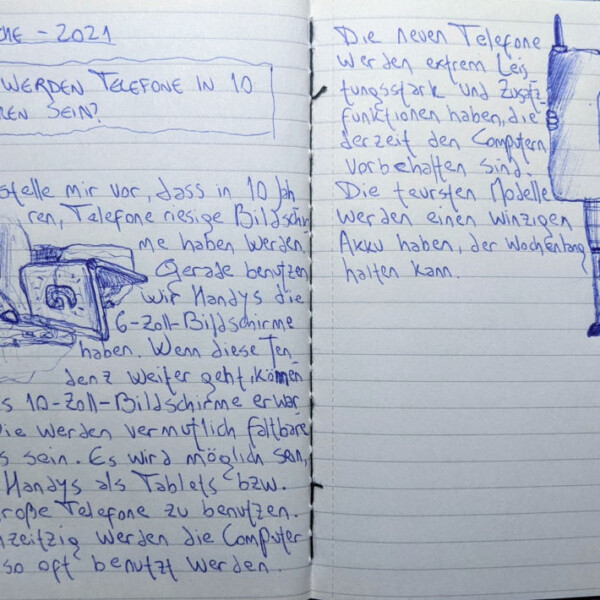 CHE - 2021
WERDEN TELEFONE IN 10
REN SEIN?
stelle mir vor, dass in 10 Jah
ren, Telefone riesige Bildschir
me haben werden.
Gerade benutzen
wir Handys die
6-Zoll-Bildschirme
haben. Wenn diese Ten_
denz weiter geht, können
s 10-Zoll-Bildschirme erwar
ie werden vermutlich faltbare
s sein. Es wird möglich sein,
Handys als Tablets bzw.
große Telefone zu benutzen.
hzeitzig werden die Computer
so oft benutzt werden.
Die neuen Telefone
werden extrem Leis
tungsstark und Zusatz_
funktionen haben, die
derzeit den Computern
vorbehalten sind.
Die teursten Modelle
werden einen winzigen
Akku haben, der wochenlang
halten kann.